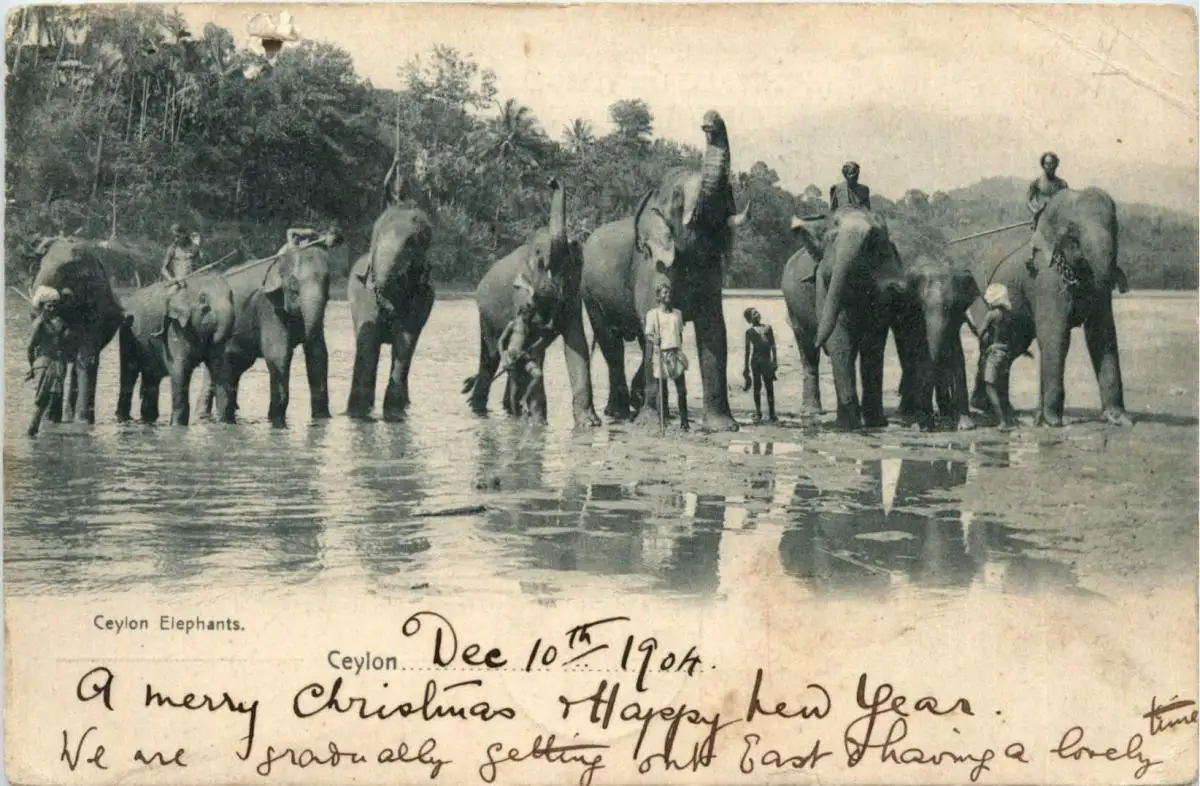 Ceylon Elephants.
Ceylon Dec 10th 1904.
A merry Christmas & Happy New Year.
We are gradually getting out East & having a lovely time